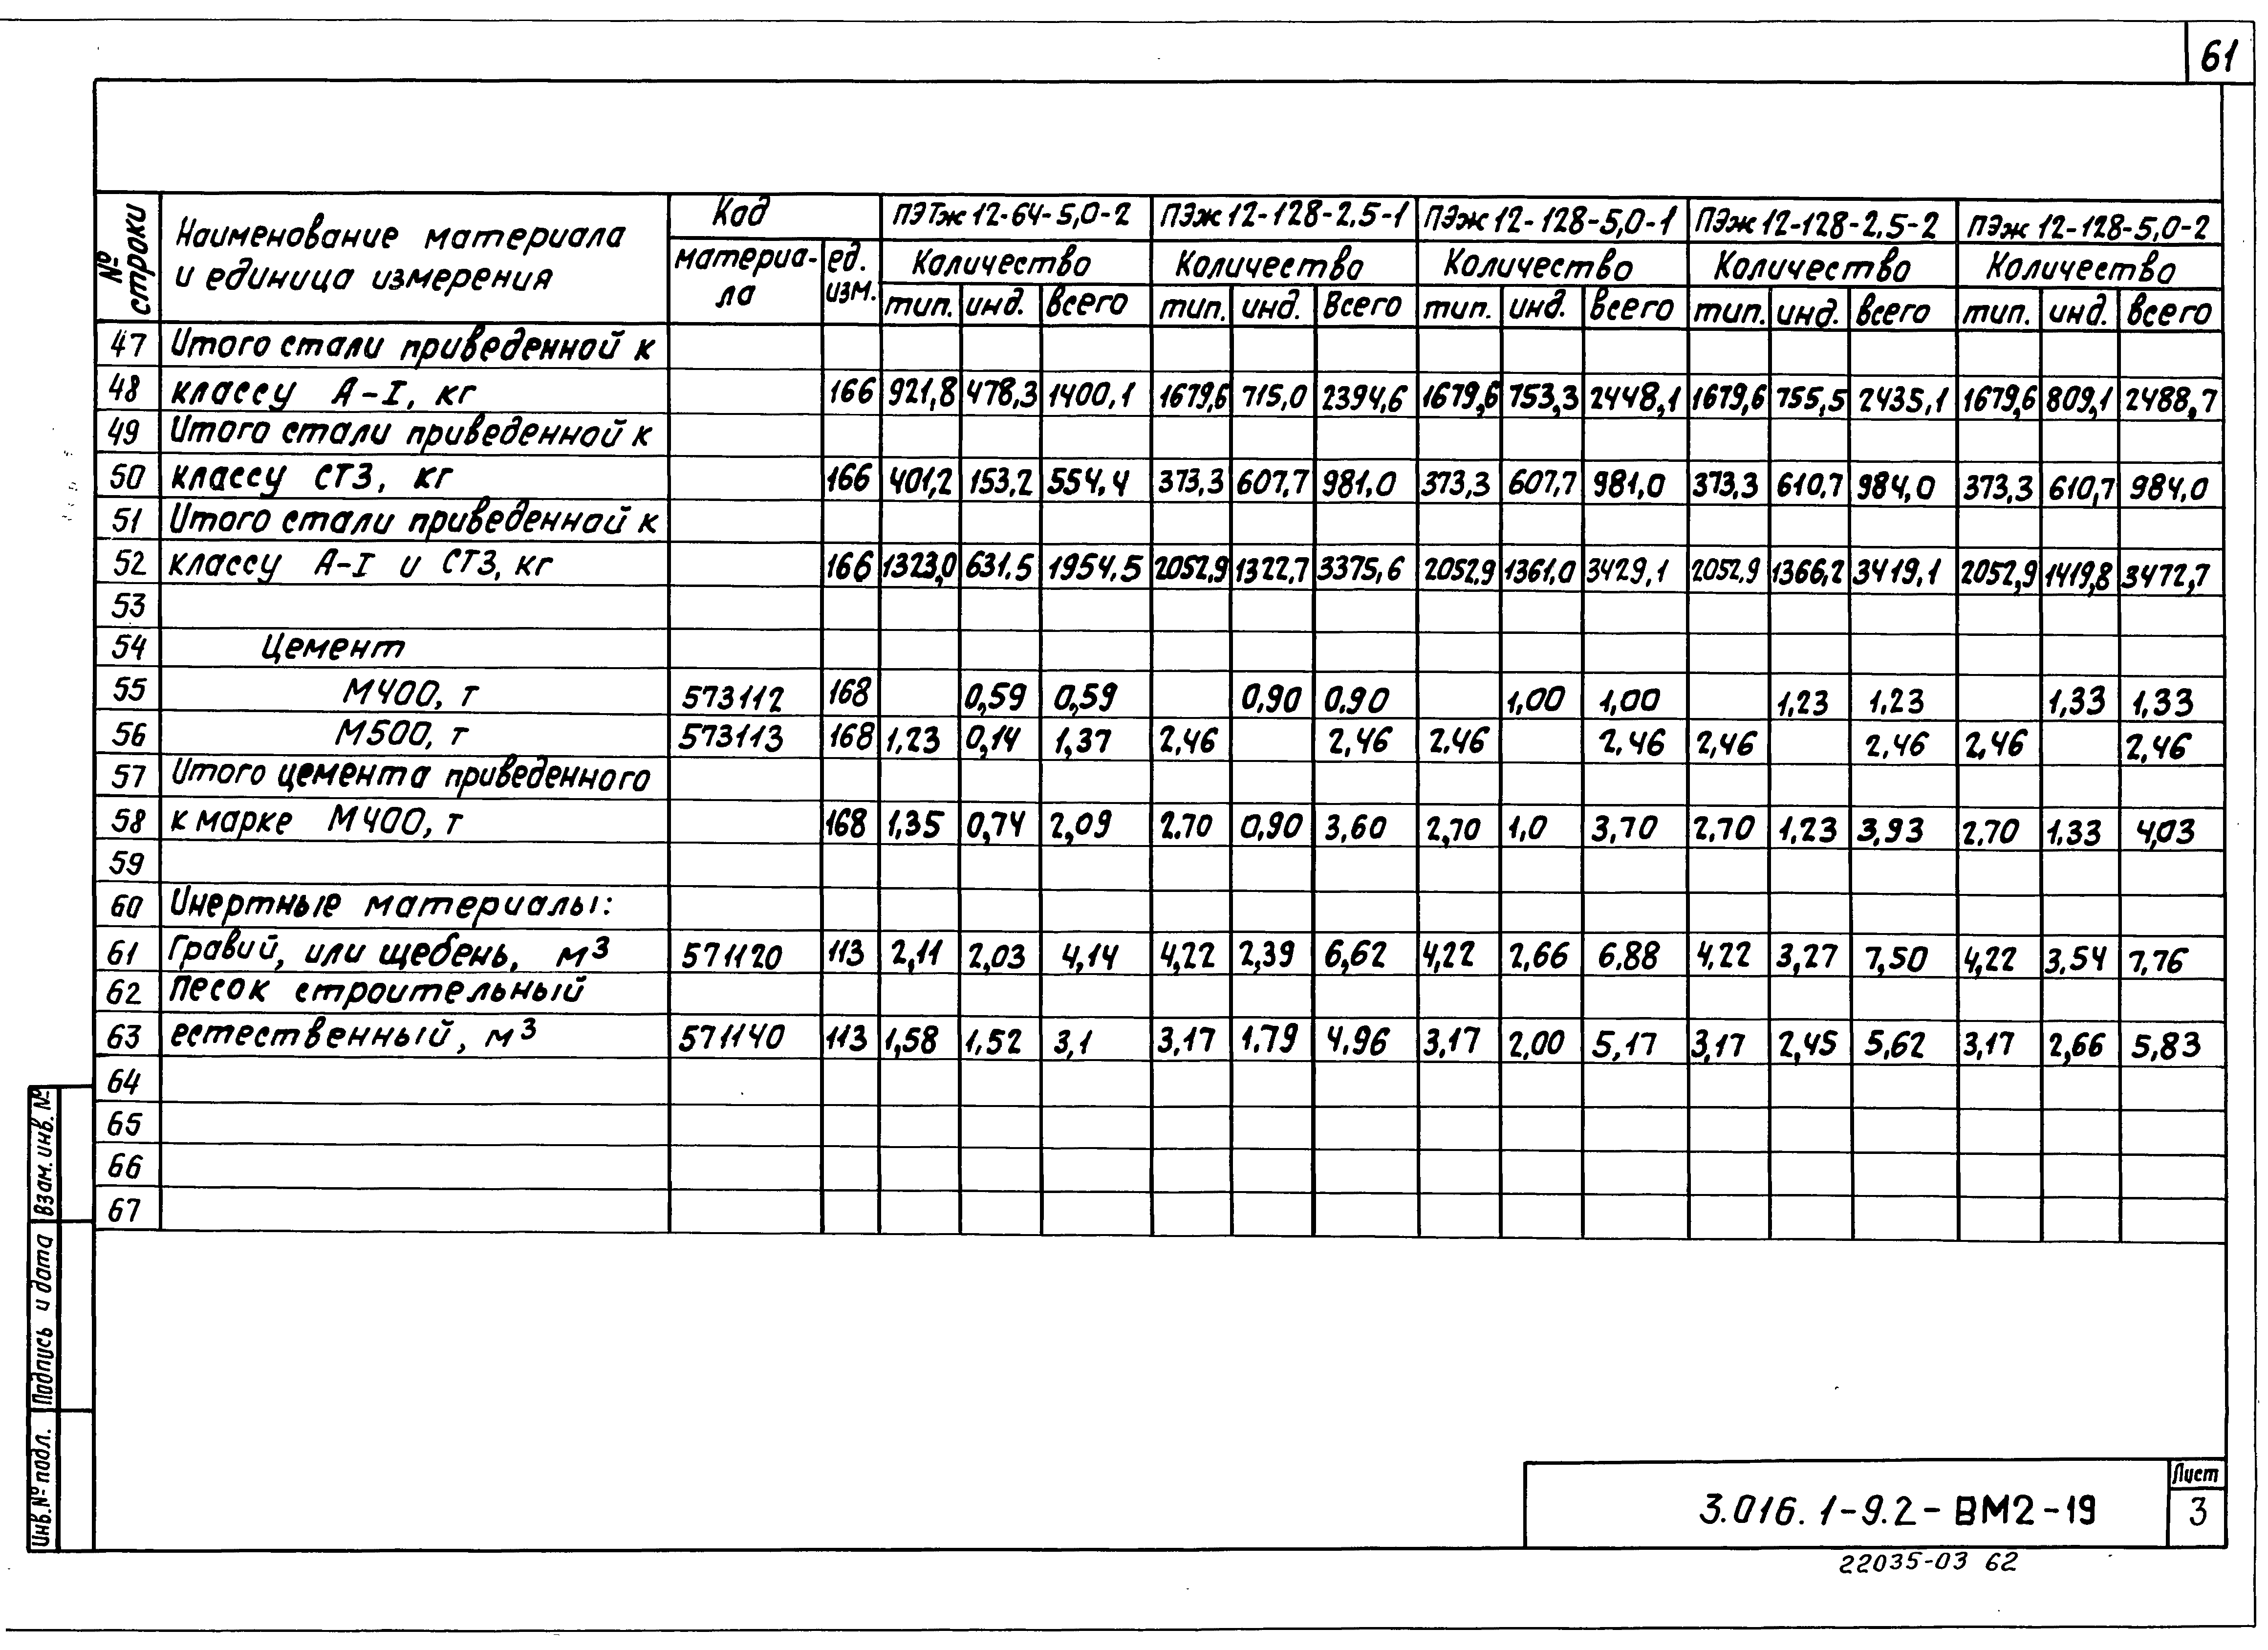 61
№ строки
Наименование материала и единица измерения
Код
материа-ла
ед. изм.
ПЭТж 12-64-5,0-2 ПЭж 12-128-2.5-1 ПЭж 12-128-5,0-1 ПЭж 12-128-2.5-2 ПЭж 12-128-5,0-2
Количество Количество Количество Количество Количество
тип. инд. всего тип. инд. всего тип. инд. всего тип. инд. всего тип. инд. всего
47 Итого стали приведенной к
48 классу А-I, кг 166 921,8 478,3 1400,1 1679,6 715,0 2394,6 1679,6 753,3 2448,1 1679,6 755,5 2435,1 1679,6 809,1 2488,7
49 Итого стали приведенной к
50 классу СТ3, кг 166 401,2 153,2 554,4 373,3 607,7 981,0 373,3 607,7 981,0 373,3 610,7 984,0 373,3 610,7 984,0
51 Итого стали приведенной к
52 классу А-I и СТ3, кг 166 1323,0 631.5 1954.5 2052,9 1322,7 3375,6 2052.9 1361,0 3429,1 2052.9 1366,2 3419,1 2052,9 1419,8 3472,7
53
54 Цемент
55 М400, т 573112 168 0,59 0,59 0,90 0.90 1,00 1,00 1,23 1,23 1,33 1,33
56 М500, т 573113 168 1,23 0,14 1,37 2,46 2,46 2.46 2.46 2,46 2,46 2,46 2,46
57 Итого цемента приведенного
58 к марке М400, т 168 1,35 0,74 2,09 2.70 0,90 3,60 2,70 1,0 3,70 2,70 1,23 3,93 2,70 1.33 4,03
59
60 Инертные материалы:
61 Гравий, или щебень, м³ 571120 113 2,11 2,03 4,14 4,22 2,39 6,62 4,22 2,66 6,88 4,22 3,27 7,50 4,22 3,54 7,76
62 Песок строительный
63 естественный, м³ 571140 113 1,58 1,52 3,1 3,17 1.79 4.96 3,17 2,00 5,17 3,17 2,45 5,62 3,17 2,66 5,83
64
65
66
67
Взам. инв. №
Подпись и дата
Инв. № подл.
3.016.1-9.2-ВМ2-19
Лист
3
22035-03 62